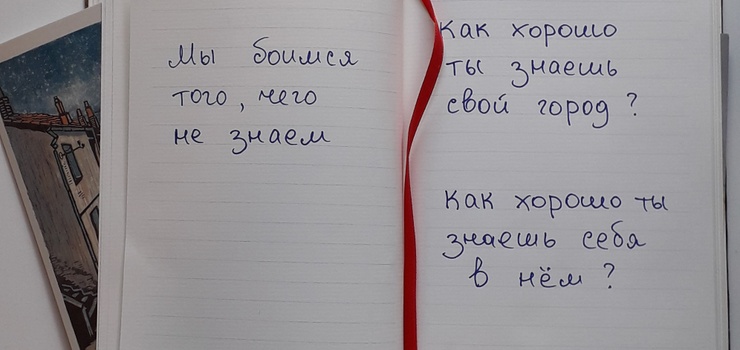 Мы боимся
того, чего
не знаем
Как хорошо
ты знаешь
свой город?
Как хорошо ты
знаешь себя
в нём?